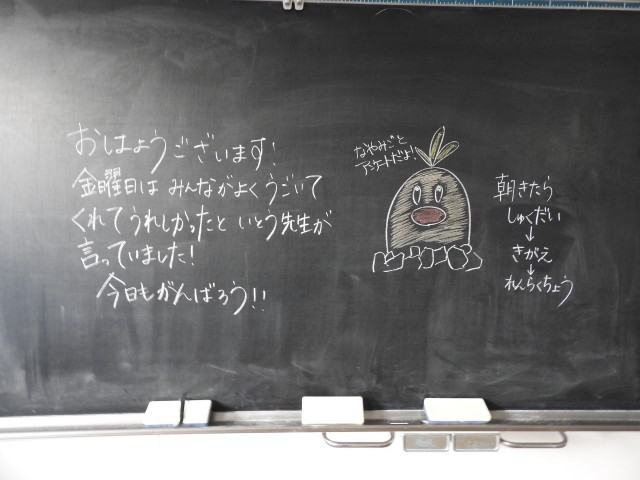 おはようございます!
金曜日は みんながよく うごいて
くれて うれしかったと いとう先生が
言っていました!
今日もがんばろう!!
なやみごと
アンケートだよ!
朝きたら
しゅくだい
↓
きがえ
↓
れんらくちょう